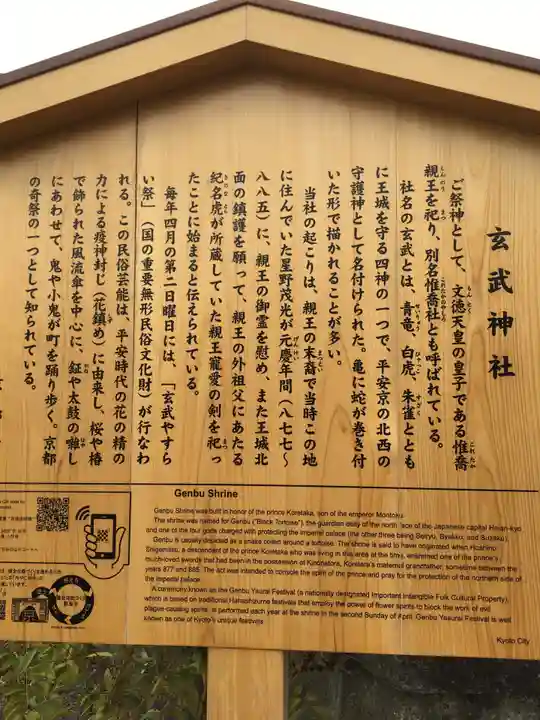 玄武神社
ご祭神として、文徳天皇の皇子である惟喬
親王を祀り、別名惟喬社とも呼ばれている。
社名の玄武とは、青竜、白虎、朱雀ととも
に王城を守る四神の一つで、平安京の北西の
守護神として名付けられた。亀に蛇が巻き付
いた形で描かれることが多い。
当社の起こりは、親王の末裔で当時この地
に住んでいた星野茂光が元慶年間（八七七～
八八五）に、親王の御霊を慰め、また王城北
面の鎮護を願って、親王の外祖父にあたる
紀名虎が所蔵していた親王寵愛の剣を祀っ
たことに始まると伝えられている。
毎年四月の第二日曜日には、「玄武やすら
い祭」（国の重要無形民俗文化財）が行なわ
れる。この民俗芸能は、平安時代の花の精の
力による疫神封じ（花鎮め）に由来し、桜や椿
で飾られた風流傘を中心に、鉦や太鼓の囃し
にあわせて、鬼や小鬼が町を踊り歩く。京都
の奇祭の一つとして知られている。
Genbu Shrine
Genbu Shrine was built in honor of the prince Koretaka, son of the emperor Montoku.
The shrine was named for Genbu ("Black Tortoise"), the guardian deity of the north of the Japanese capital Heian-kyo
and one of the four gods charged with protecting the imperial palace (the other three being Seiryu, Byakko, and Suzaku).
Genbu is usually depicted as a snake coiled around a tortoise. The shrine is said to have originated when Hoshino
Shigemitsu, a descendant of the prince Koretaka who was living in this area at the time, enshrined one of the prince's
much-loved swords that had been in the possession of Kinonatora, Koretaka's maternal grandfather, sometime between the
years 877 and 885. The act was intended to console the spirit of the prince and pray for the protection of the northern side of
the imperial palace.
A ceremony known as the Genbu Yasurai Festival (a nationally designated Important Intangible Folk Cultural Property),
which is based on traditional Hanashizume festivals that employ the power of flower spirits to block the work of evil
plague-causing spirits, is performed each year at the shrine in the second Sunday of April. Genbu Yasurai Festival is well
known as one of Kyoto's unique festivals.
Kyoto City